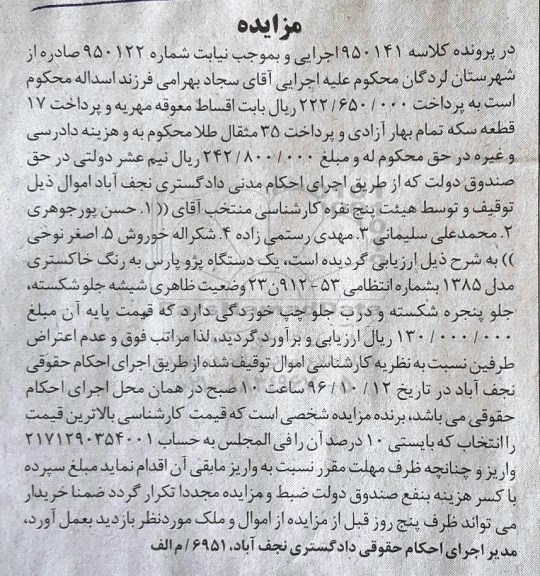 مزایده
در پرونده کلاسه ۹۵۰۱۴۱ اجرایی و بموجب نیابت شماره ۹۵۰۱۲۲ صادره از
شهرستان لردگان محکوم علیه اجرایی آقای سجاد بهرامی فرزند اسداله محکوم
است به پرداخت ۲۲۲/۶۵۰/۰۰۰ ریال بابت اقساط معوقه مهریه و پرداخت ۱۷
قطعه سکه تمام بهار آزادی و پرداخت ۳۵ مثقال طلا محکوم به و هزینه دادرسی
و غیره در حق محکوم له و مبلغ ۲۴۲/۸۰۰/۰۰۰ ریال نیم عشر دولتی در حق
صندوق دولت که از طریق اجرای احکام مدنی دادگستری نجف آباد اموال ذیل
توقیف و توسط هیئت پنج نفره کارشناسی منتخب آقای (( ۱. حسن پورجوهری
۲. محمدعلی سلیمانی ۳. مهدی رستمی زاده ۴. شکراله خوروش ۵. اصغر نوخی
)) به شرح ذیل ارزیابی گردیده است، یک دستگاه پژو پارس به رنگ خاکستری
مدل ۱۳۸۵ بشماره انتظامی ۵۳-۹۱۲ن۲۳ وضعیت ظاهری شیشه جلو شکسته،
جلو پنجره شکسته و درب جلو چپ خوردگی دارد که قیمت پایه آن مبلغ
۱۳۰/۰۰۰/۰۰۰ ریال ارزیابی و برآورد گردید، لذا مراتب فوق و عدم اعتراض
طرفین نسبت به نظریه کارشناسی اموال توقیف شده از طریق اجرای احکام حقوقی
نجف آباد در تاریخ ۹۶/۱۰/۱۲ ساعت ۱۰ صبح در همان محل اجرای احکام
حقوقی می باشد، برنده مزایده شخصی است که قیمت کارشناسی بالاترین قیمت
را انتخاب که بایستی ۱۰ درصد آن را فی المجلس به حساب ۲۱۷۱۲۹۰۳۵۴۰۰۱
واریز و چنانچه ظرف مهلت مقرر نسبت به واریز مابقی آن اقدام نماید مبلغ سپرده
با کسر هزینه بنفع صندوق دولت ضبط و مزایده مجددا تکرار گردد ضمنا خریدار
می تواند ظرف پنج روز قبل از مزایده از اموال و ملک موردنظر بازدید بعمل آورد،
مدیر اجرای احکام حقوقی دادگستری نجف آباد، ۶۹۵۱/م الف